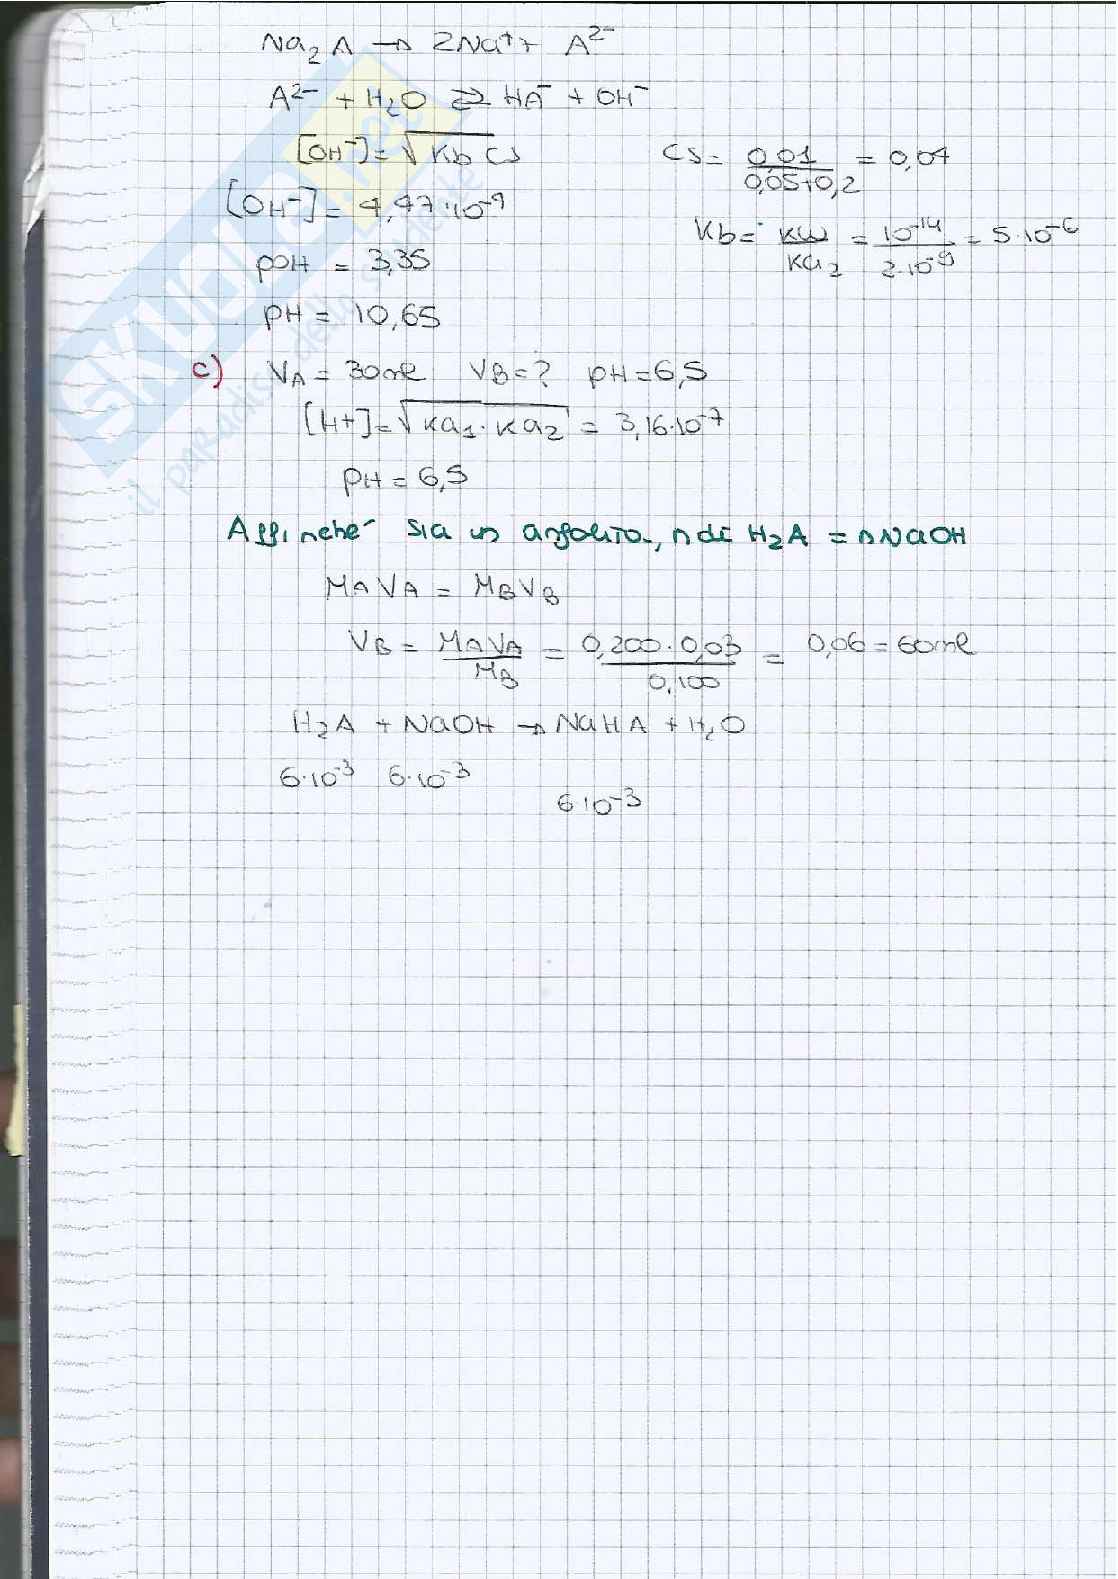 Na₂A → 2Na⁺ + A²⁻
A²⁻ + H₂O ⇄ HA⁻ + OH⁻
[OH⁻] = √Kb Cs    Cs = 0,01 / 0,05+0,2 = 0,04
[OH⁻] = 4,47·10⁻⁴    Kb = Kw / Ka₂ = 10⁻¹⁴ / 2·10⁻⁹ = 5·10⁻⁶
pOH = 3,35
pH = 10,65
c) VA = 30ml VB = ? pH = 6,5
[H+] = √Ka₁·Ka₂ = 3,16·10⁻⁷
pH = 6,5
Affinché sia un anfolita, n di H₂A = n NaOH
MAVA = MBVB
VB = MAVA / MB = 0,200·0,03 / 0,100 = 0,06 = 60ml
H₂A + NaOH → NaHA + H₂O
6·10⁻³ 6·10⁻³
6·10⁻³
SKUOLA.net
il paradiso dello studente